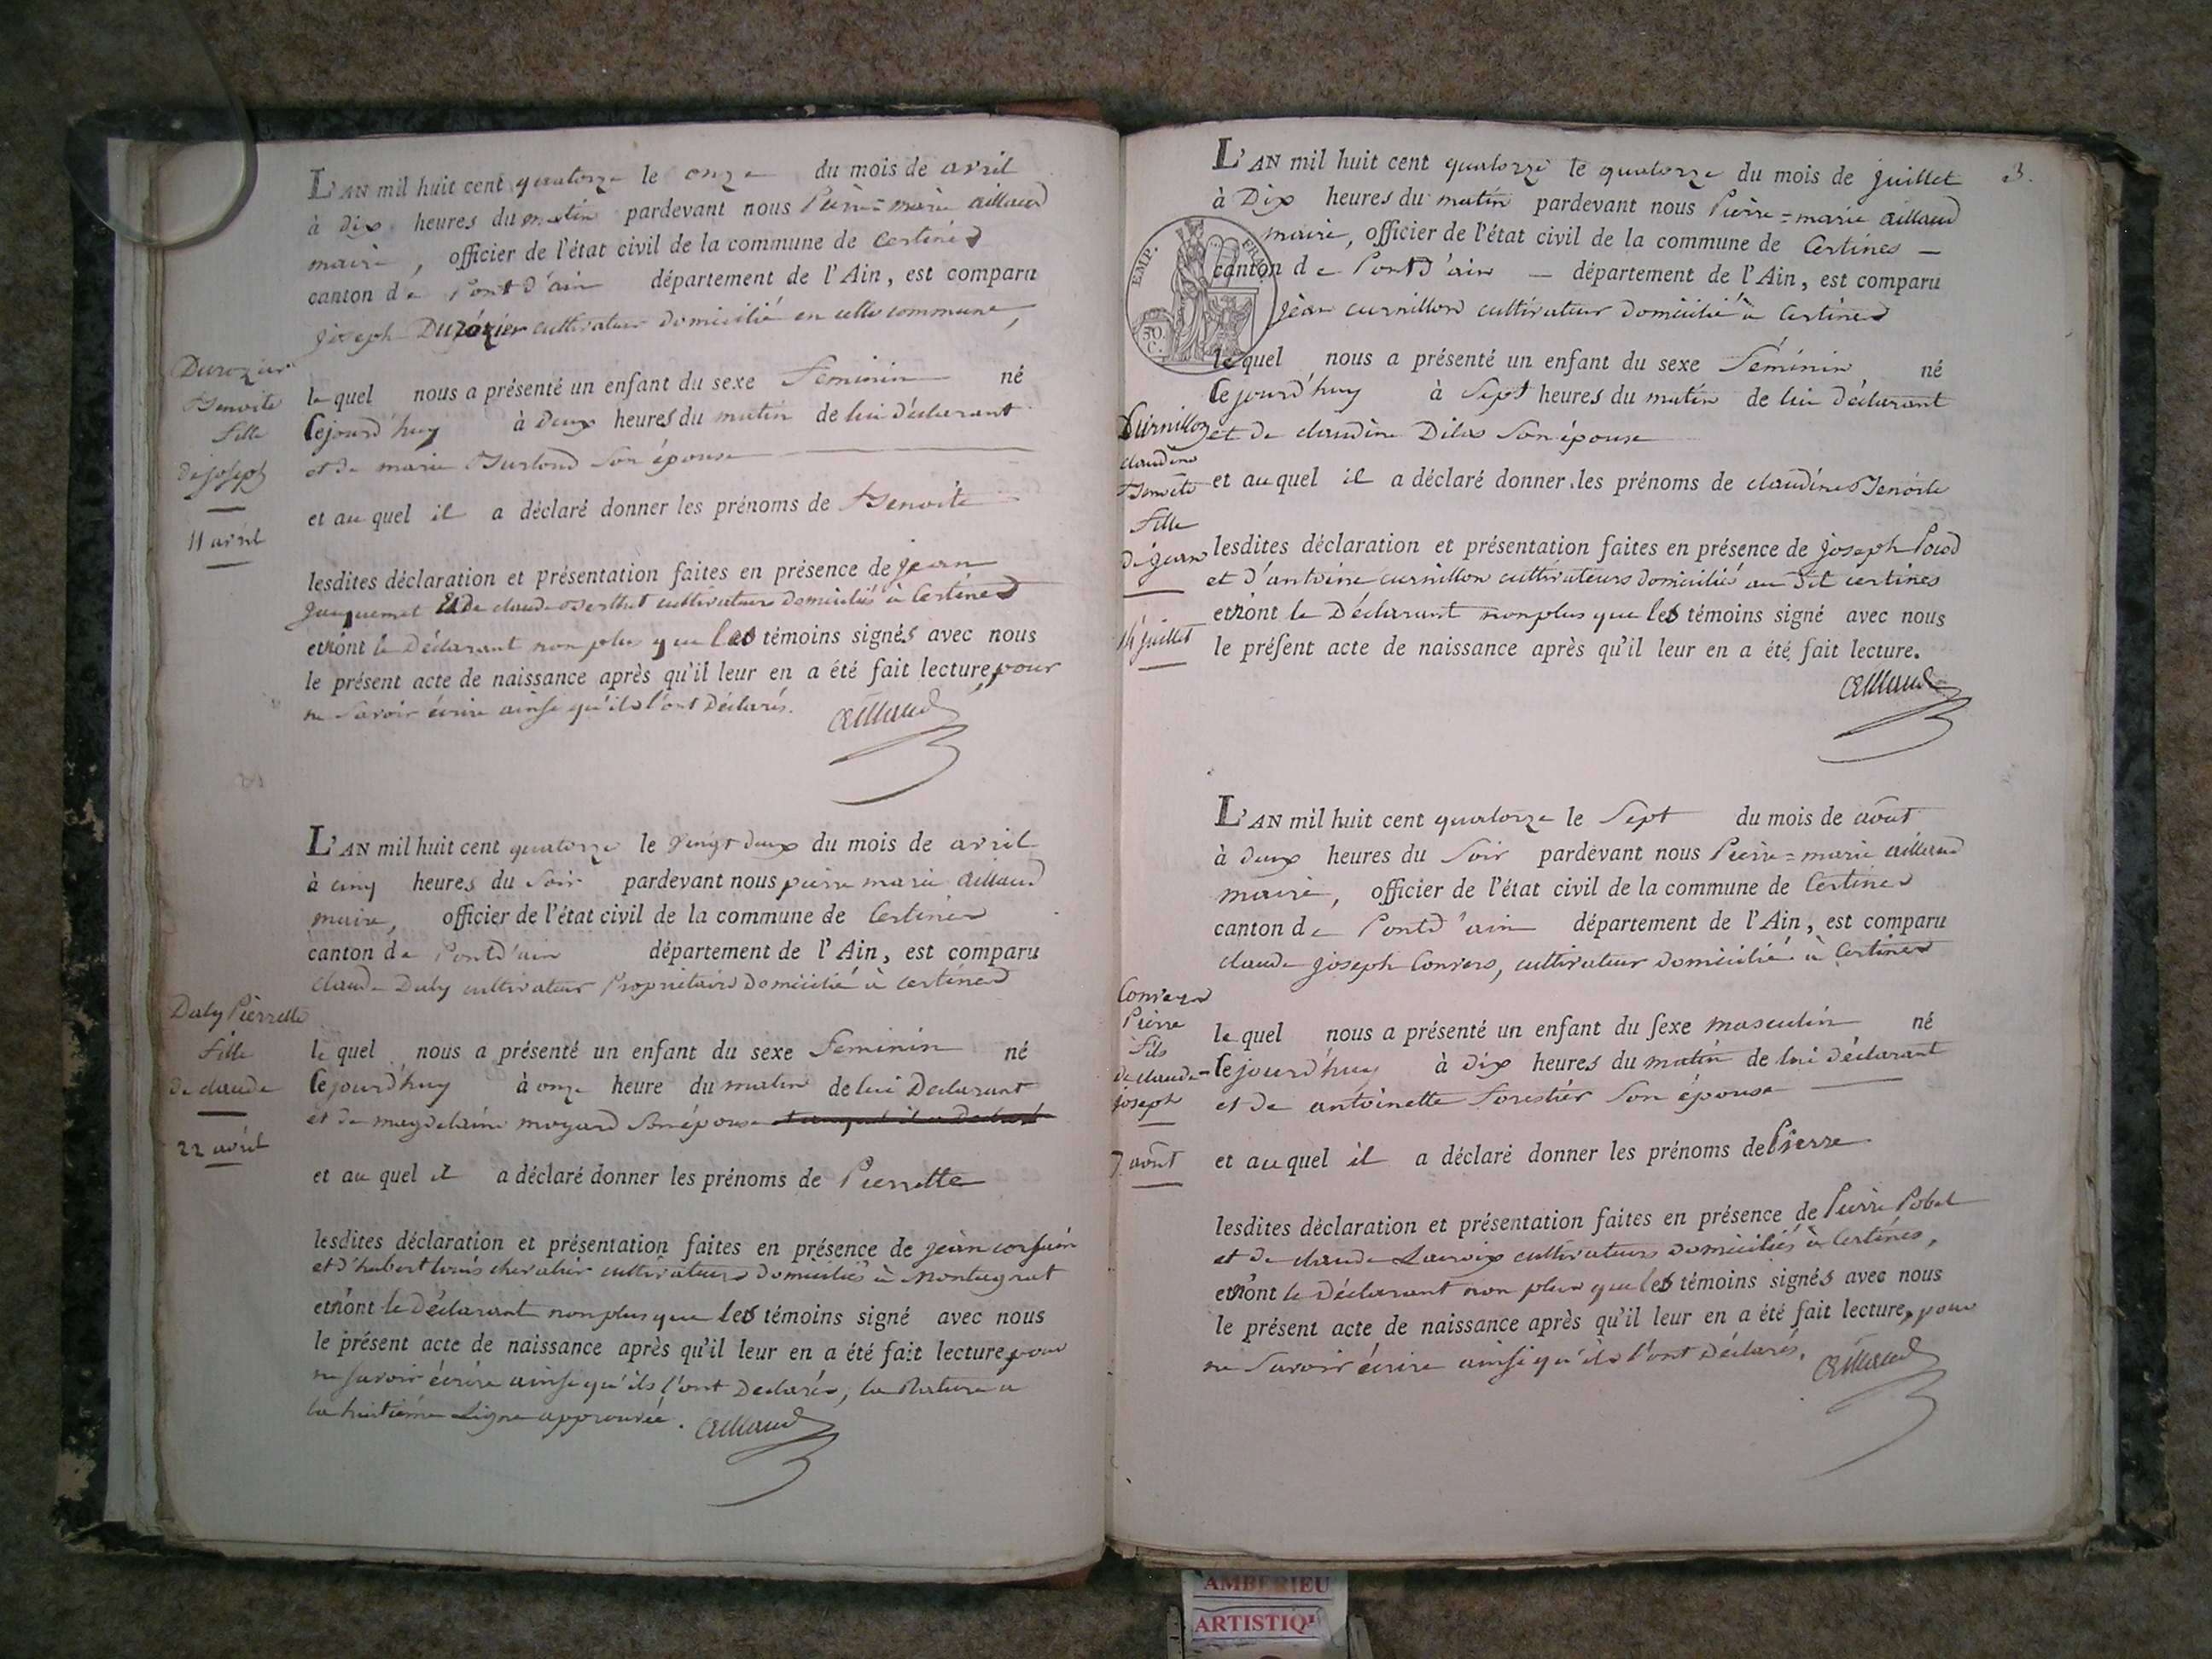 L'AN mil huit cent quatorze le onze du mois de avril
à dix heures du matin pardevant nous Pierre=marie aillaud
maire, officier de l'état civil de la commune de Certines
canton de Pont d'ain département de l'Ain, est comparu
joseph Durozier cultivateur domicilié en cette commune,
Durozier
Benoite
fille
de joseph
11 avril
lequel nous a présenté un enfant du sexe feminin né
Cejourd'huy à Deux heures du matin de lui déclarant
et de marie son épouse
et auquel il a déclaré donner les prénoms de Benoite
lesdites déclaration et présentation faites en présence de jean
juquemet Et De claude Berthet cultivateurs domiciliés à Certines
et n'ont le Déclarant non plus que les témoins signés avec nous
le présent acte de naissance après qu'il leur en a été fait lecture, pour
ne Savoir écrire ainsi qu'ils l'ont Déclarés. Aillaud
L'AN mil huit cent quatorze le vingt deux du mois de avril
à cinq heures du Soir pardevant nous pierre marie aillaud
maire, officier de l'état civil de la commune de Certines
canton de Pont d'ain département de l'Ain, est comparu
claude Daly cultivateur Propriétaire Domicilié à certines
Daly Pierrette
fille
de claude
22 avril
lequel nous a présenté un enfant du sexe feminin né
Cejourd'huy à onze heure du matin de lui Declarant
et de magdelaine moyard Son épouse
et auquel il a déclaré donner les prénoms de Pierrette
lesdites déclaration et présentation faites en présence de jean
et d'hubert louis chevalier cultivateurs domiciliés à Montagnat
et n'ont le Déclarant non plus que les témoins signé avec nous
le présent acte de naissance après qu'il leur en a été fait lecture, pour
ne savoir écrire ainsi qu'ils l'ont Declarés, la Rature a
la huitième Ligne approuvée. Aillaud
3.
L'AN mil huit cent quatorze le quatorze du mois de juillet
à Dix heures du matin pardevant nous Pierre=marie aillaud
maire, officier de l'état civil de la commune de Certines —
canton de Pont d'ain — département de l'Ain, est comparu
jean curnillon cultivateur domicilié à Certines
EMP. FRA.
50 C.
lequel nous a présenté un enfant du sexe féminin né
Cejourd'huy à Sept heures du matin de lui déclarant
et de claudine Dilas Son épouse
Curnillon
claudine
Benoite
fille
De jean
14 juillet
et auquel il a déclaré donner les prénoms de claudine Benoite
lesdites déclaration et présentation faites en présence de joseph
et d'antoine curnillon cultivateurs domiciliés au dit certines
et n'ont le Déclarant non plus que les témoins signé avec nous
le présent acte de naissance après qu'il leur en a été fait lecture.
Aillaud
L'AN mil huit cent quatorze le Sept du mois de août
à deux heures du Soir pardevant nous Pierre=marie aillaud
maire, officier de l'état civil de la commune de Certines
canton de Pont d'ain département de l'Ain, est comparu
claude joseph Convers, cultivateur domicilié à Certines
Convers
Pierre
fils
de claude-
joseph
7 août
lequel nous a présenté un enfant du sexe masculin né
Cejourd'huy à dix heures du matin de lui déclarant
et de antoinette forestier Son épouse
et auquel il a déclaré donner les prénoms de Pierre
lesdites déclaration et présentation faites en présence de Pierre Pobel
et de claude Lacroix cultivateurs domiciliés à Certines,
et n'ont le Déclarant non plus que les témoins signés avec nous
le présent acte de naissance après qu'il leur en a été fait lecture, pour
ne Savoir écrire ainsi qu'ils l'ont Déclarés. Aillaud
AMBERIEU
ARTISTIQ